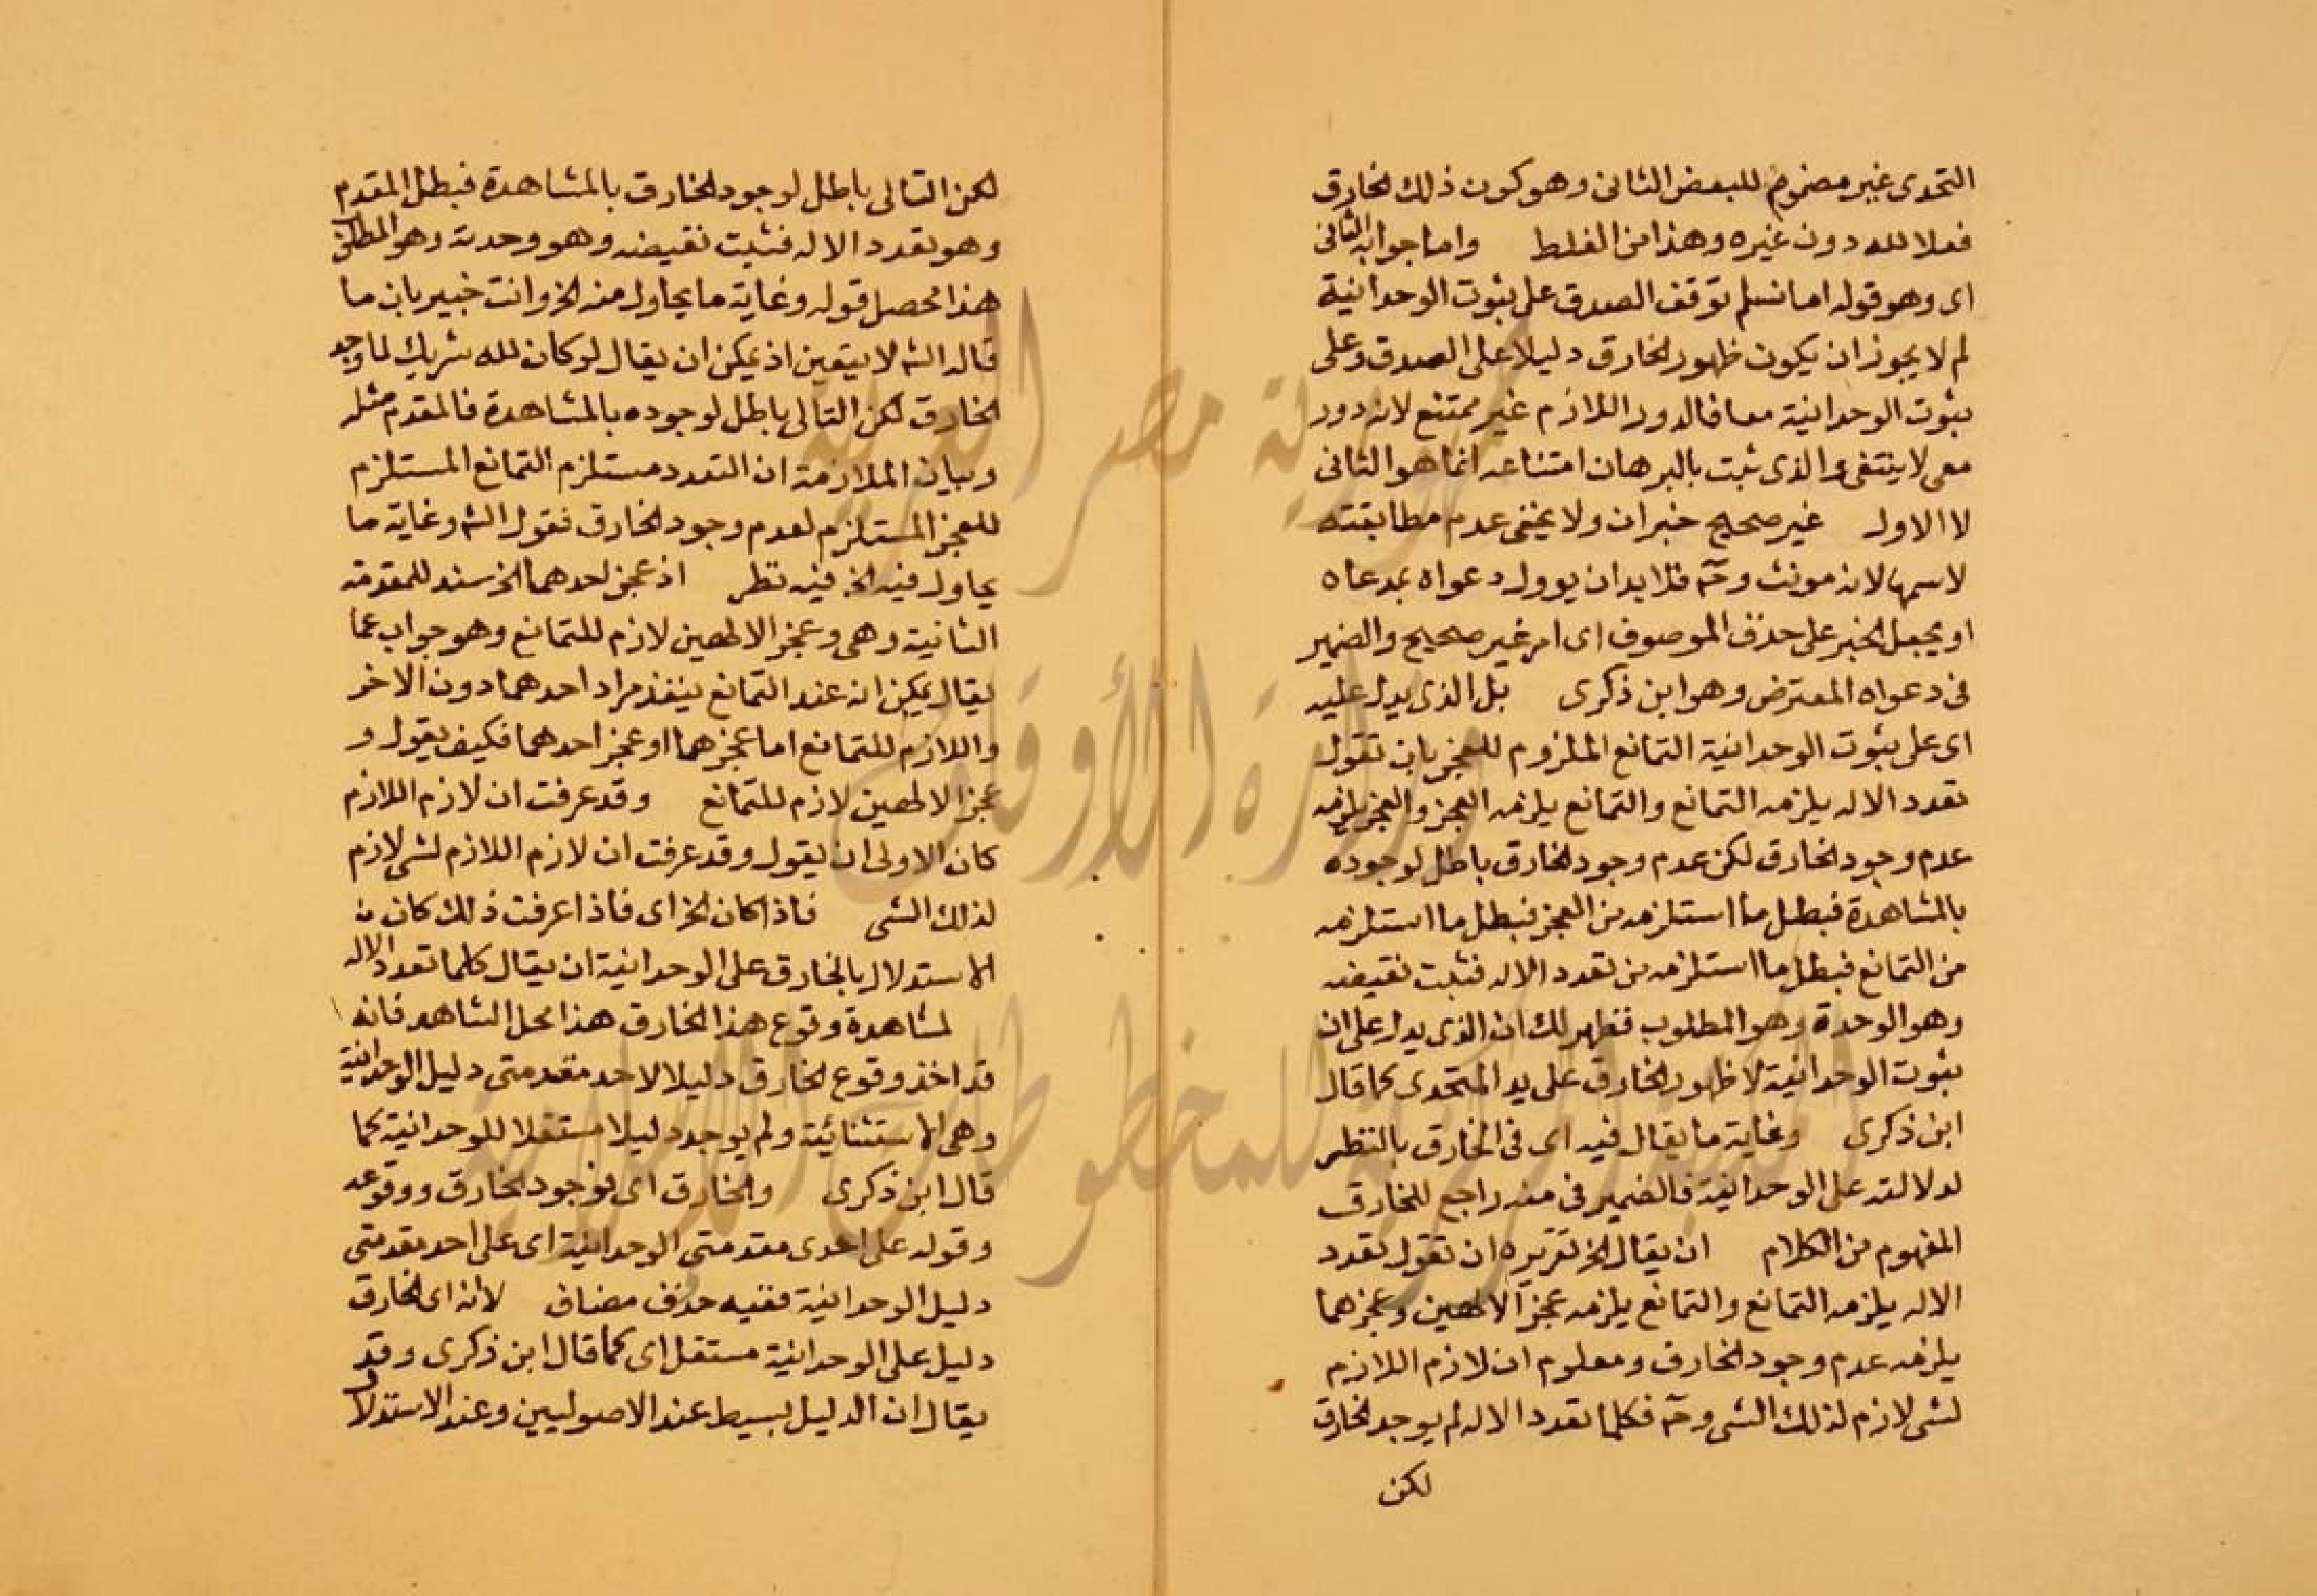 التحدى غير مضموم للبعض الثانى وهو كون ذلك الخارق
فعلا لله دون غيره وهذا من الغلط واما جوابه الثانى
اى وهو قوله اما نسلم توقف الصدق على ثبوت الوحدانية
لم لا يجوز ان يكون ظهور الخارق دليلا على الصدق وعلى
ثبوت الوحدانية معا فالدور اللازم غير ممتنع لانه دور
معى لا ينتفى والذى ثبت بالبرهان امتناعه انما هو الثانى
لا الاول غير صحيح خبران ولا يخفى عدم مطابقته
لاسمها لانه مونث وحـ فلا بد ان يوول دعواه بمدعاه
او يجعل الخبر على حذف الموصوف اى امر غير صحيح والضمير
فى دعواه المعترض وهو ابن ذكرى بل الذى يدل عليه
اى على ثبوت الوحدانية التمانع الملزوم للعجز بان تقول
تعدد الاله يلزمه التمانع والتمانع يلزمه العجز والعجز يلزمه
عدم وجود الخارق لكن عدم وجود الخارق باطل لوجوده
بالمشاهدة فبطل ما استلزمه من العجز فبطل ما استلزمه
من التمانع فبطل ما استلزمه من تعدد الاله فثبت نقيضه
وهو الوحدة وهو المطلوب فظهر لك ان الذى يدل على ان
ثبوت الوحدانية لا ظهور الخارق على يد المتحدى كما قال
ابن ذكرى وغاية ما يقال فيه اى فى الخارق بالنظر
لدلالته على الوحدانية فالضمير فى منه راجع للخارق
المفهوم من الكلام ان يقال الخ تقريره ان تقول تعدد
الاله يلزمه التمانع والتمانع يلزمه عجز الالهين وعجزهما
يلزمه عدم وجود الخارق ومعلوم ان لازم اللازم
لشى لازم لذلك الشى وحـ فكلما تعدد الاله لم يوجد الخارق
لكن
لكن التالى باطل لوجود الخارق بالمشاهدة فبطل المقدم
وهو تعدد الاله فثبت نقيضه وهو وحدته وهو المطلوب
هذا محصل قوله وغاية ما يحاول منه الخ وانت خبير بان ما
قاله الشـ لا يتعين اذ يمكن ان يقال لو كان لله شريك لما وجد
الخارق لكن التالى باطل لوجوده بالمشاهدة فالمقدم مثله
وبيان الملازمة ان التعدد مستلزم التمانع المستلزم
للعجز المستلزم لعدم وجود الخارق فقول الشـ وغاية ما
يحاول فيه الخ فيه نظر اذ عجز احدهما الخ سند للمقدمة
الثانية وهى وعجز الالهين لازم للتمانع وهو جواب عما
يقال يمكن انه عند التمانع ينفذ مراد احدهما دون الاخر
واللازم للتمانع اما عجزهما او عجز احدهما فكيف يقول و
عجز الالهين لازم للتمانع وقد عرفت ان لازم اللازم
كان الاولى ان يقول وقد عرفت ان لازم اللازم لشى لازم
لذلك الشى فاذا كان الخ اى فاذا عرفت ذلك كان
الاستدلال بالخارق على الوحدانية ان يقال كلما تعدد الاله
لمشاهدة وقوع هذا الخارق هذا محل الشاهد فانه
قد اخذ وقوع الخارق دليلا لاحد مقدمتى دليل الوحدانية
وهى الاستثنائية ولم يوجد دليلا مستقلا للوحدانية كما
قال ابن ذكرى والخارق اى فوجود الخارق ووقوعه
وقوله على احدى مقدمتى الوحدانية اى على احد مقدمتى
دليل الوحدانية ففيه حذف مضاف لانه اى الخارق
دليل على الوحدانية مستقل اى كما قال ابن ذكرى وقد
يقال ان الدليل بسيط عند الاصوليين وعند الاستدلال
جمهورية مصر العربية
وزارة الأوقاف
المكتبة المركزية للمخطوطات الإسلامية